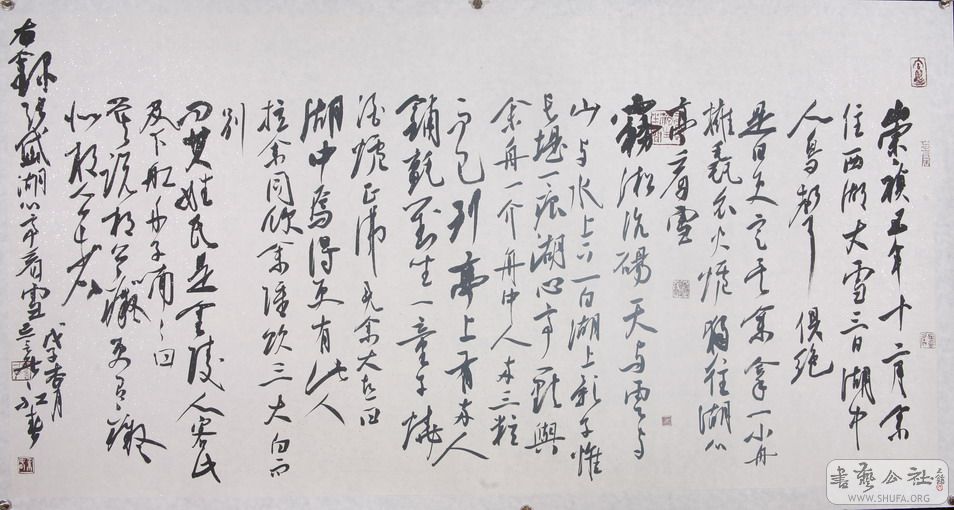 崇禎五年十二月余
住西湖大雪三日湖中
人鳥聲俱絕
是日更定矣余拏一小舟
擁毳衣火爐獨往湖心
亭看雪
霧淞沆碭天与雲与
山与水上下一白湖上影子惟
長堤一痕湖心亭一點與
余舟一介舟中人兩三粒
而已到亭上有兩人
鋪氈對坐一童子燒
酒爐正沸見余大喜曰
湖中焉得更有此人
拉余同飲余強飲三大白而
別
问其姓氏是金陵人客此
及下船舟子喃喃曰
莫說相公癡更有癡
似相公者
戊子杏月
右錄張岱湖心亭看雪
書藝公社
WWW.SHUFA.ORG